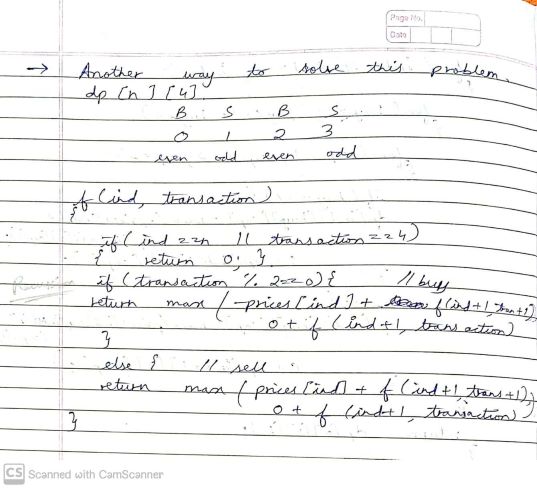 Page No.
Date
→ Another way to solve this problem.
dp [n] [4].
B S B S
0 1 2 3
even odd even odd
f (ind, transaction)
{
if ( ind == n || transaction == 4)
{ return 0; }
if (transaction % 2 == 0) { // buy
return max ( -prices [ind] + f (ind+1, tran+1),
0 + f (ind+1, transaction)
}
else { // sell
return max ( prices [ind] + f (ind+1, trans+1),
0 + f (ind+1, transaction) )
}
CS Scanned with CamScanner